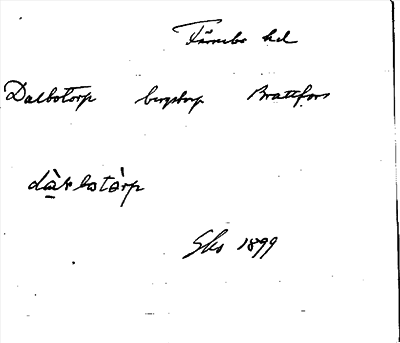 Färnebo hd
Dalbotorp bergstorp Brattfors
dàlbotòrp
Sks 1899